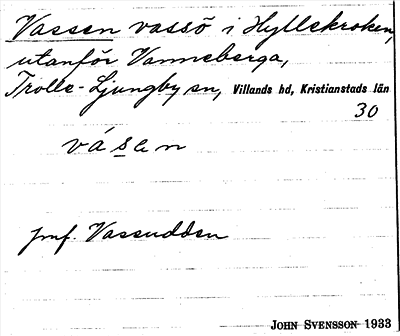 Vassen vassö i Hyllekroken,
utanför Vanneberga,
Trolle-Ljungby sn, Villands hd, Kristianstads län
30
vásen
jmf. Vassudden
JOHN SVENSSON 1933